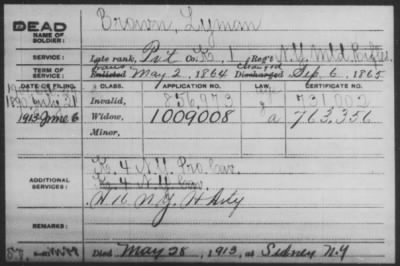 DEAD
NAME OF SOLDIER:
Brown, Lyman
SERVICE:
Late rank, Pvt Co. K, 1 Reg't N.Y. Mtd. Rifles
TERM OF SERVICE:
Enlisted May 2, 1864 Discharged Sep. 6, 1865
DATE OF FILING. CLASS. APPLICATION NO. CERTIFICATE NO.
1890 July 21 Invalid, 856,973 731,002
1913 June 6 Widow, 1009008 a 763,356
Minor,
ADDITIONAL SERVICES:
Co. 4 N.Y. Pro. Cav.
Co. 4 N.Y. Cav.
H 16 N.Y. H Arty
REMARKS:
Died May 28, 1913, at Sidney N.Y